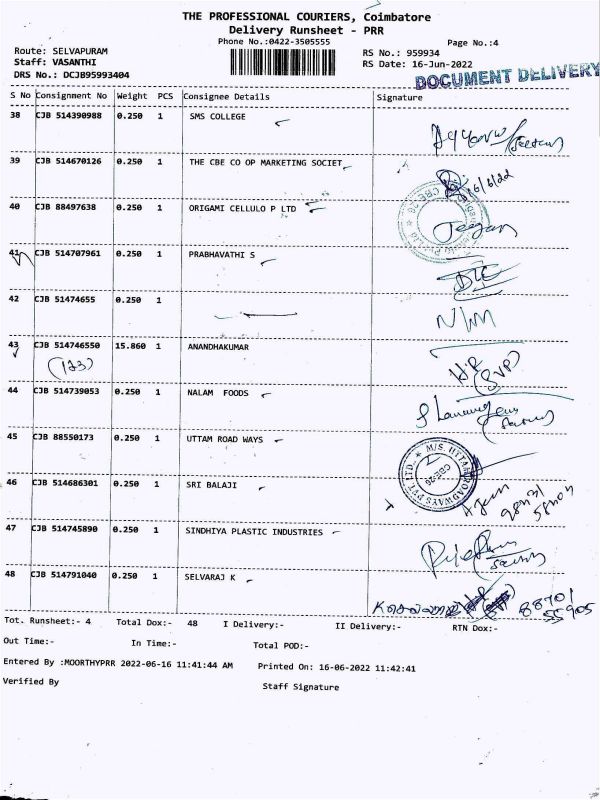 THE PROFESSIONAL COURIERS, Coimbatore
Delivery Runsheet - PRR
Phone No.:0422-3505555
Page No.:4
Route: SELVAPURAM
RS No.: 959934
Staff: VASANTHI
RS Date: 16-Jun-2022
DRS No.: DCJB95993404
DOCUMENT DELIVERY
S No Consignment No Weight PCS Consignee Details Signature
38 CJB 514390988 0.250 1 SMS COLLEGE
39 CJB 514670126 0.250 1 THE CBE CO OP MARKETING SOCIET
16/6/22
40 CJB 88497638 0.250 1 ORIGAMI CELLULO P LTD
Jeegan
41 CJB 514707961 0.250 1 PRABHAVATHI S
42 CJB 51474655 0.250 1
43 CJB 514746550 15.860 1 ANANDHAKUMAR
(123)
(SVP)
44 CJB 514739053 0.250 1 NALAM FOODS
45 CJB 88550173 0.250 1 UTTAM ROAD WAYS
M/S. UTTAM ROADWAYS PVT. LTD.
CBE-26
46 CJB 514686301 0.250 1 SRI BALAJI
47 CJB 514745890 0.250 1 SINDHIYA PLASTIC INDUSTRIES
48 CJB 514791040 0.250 1 SELVARAJ K
88701
55905
Tot. Runsheet:- 4 Total Dox:- 48 I Delivery:- II Delivery:- RTN Dox:-
Out Time:- In Time:- Total POD:-
Entered By :MOORTHYPRR 2022-06-16 11:41:44 AM Printed On: 16-06-2022 11:42:41
Verified By Staff Signature